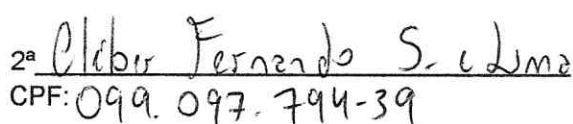 2ª Cleber Fernando S. e Lima
CPF: 099.097.794-39